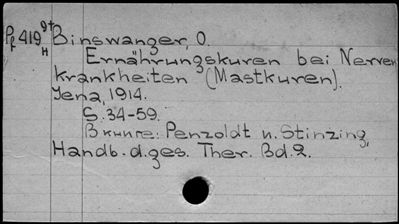 Pf 419 9+
H
Binswanger, O.
Ernährungskuren bei Nerven
krankheiten (Mastkuren).
Jena, 1914.
S. 34-59.
В книге: Penzoldt u. Stinzing,
Handb. d. ges. Ther. Bd. 2.